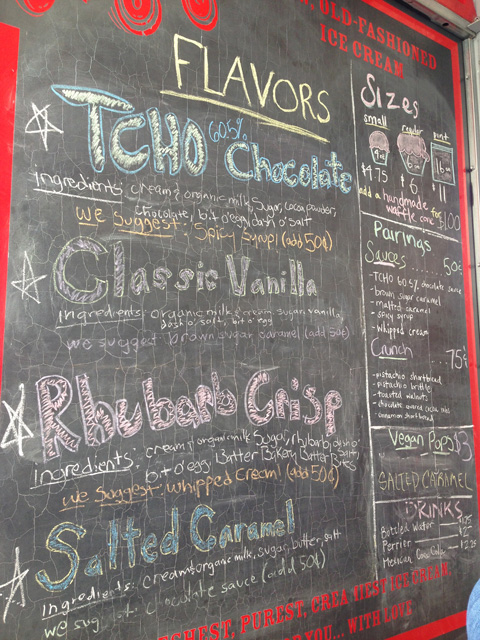 OLD-FASHIONED
ICE CREAM
FLAVORS
TCHO 60.5% Chocolate
ingredients: cream & organic milk, sugar, cocoa powder,
chocolate, bit o' egg, dash o' salt
WE SUGGEST: Spicy Syrup! (add 50¢)
Classic Vanilla
Ingredients: organic milk & cream, sugar, vanilla,
dash o' salt, bit o' egg
we suggest: brown sugar caramel (add 50¢)
Rhubarb Crisp
ingredients: cream & organic milk, sugar, rhubarb, dash o' salt,
bit o' egg, Batter Bakery Batter Bites
we suggest: whipped cream! (add 50¢)
Salted Caramel
Ingredients: cream & organic milk, sugar, butter, salt
we suggest: chocolate sauce (add 50¢)
Sizes
small regular pint
4oz 16oz
$4.75 $6 $11
add a handmade
waffle cone for $1.00
Pairings
Sauces ...... 50¢
- TCHO 60.5% chocolate sauce
- brown sugar caramel
- malted caramel
- spicy syrup
- whipped cream
Crunch ..... 75¢
- pistachio shortbread
- pistachio brittle
- toasted walnuts
- chocolate covered cocoa nibs
- cinnamon shortbread
Vegan Pops $3
SALTED CARAMEL
DRINKS
Bottled Water
Perrier $2
Mexican Coca Cola $2.25
FRESHEST, PUREST, CREAMIEST ICE CREAM,
YOU... WITH LOVE